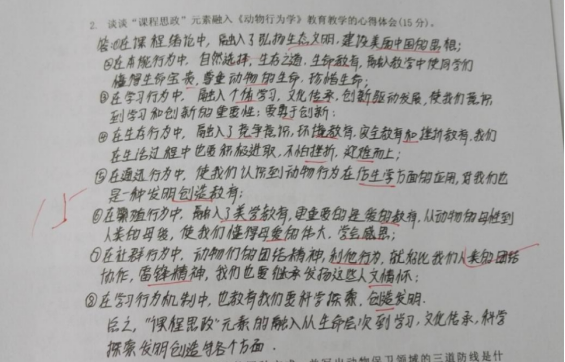 2. 谈谈“课程思政”元素融入《动物行为学》教育教学的心得体会(15分)。
答:①在课程绪论中,融入了弘扬生态文明,建设美丽中国的思想;
②在本能行为中,自然选择,生存之道,生命教育,融入教学中使同学们
懂得生命宝贵,尊重动物的生命,珍惜生命;
③在学习行为中,融入个体学习,文化传承,创新驱动发展,使我们意识
到学习和创新的重要性;要勇于创新;
④在生存行为中,融入了竞争意识,环境教育,安全教育和挫折教育,我们
在生活过程中也要积极进取,不怕挫折,迎难而上;
⑤在通迅行为中,使我们认识到动物行为在仿生学方面的应用,对我们也
是一种发明创造教育;
⑥在繁殖行为中,融入了美学教育,更重要的是爱的教育,从动物的母性到
人类的母爱,使我们懂得母爱的伟大,学会感恩;
⑦在社群行为中,动物们的团结精神,利他行为,就好比我们人类的团结
协作,雷锋精神,我们也要继承发扬这些人文情怀;
⑧在学习行为机制中,也教育我们要科学探索,创造发明.
总之,“课程思政”元素的融入从生命层次到学习,文化传承,科学
探索发明创造的各个方面.
15
域的三道防线是什